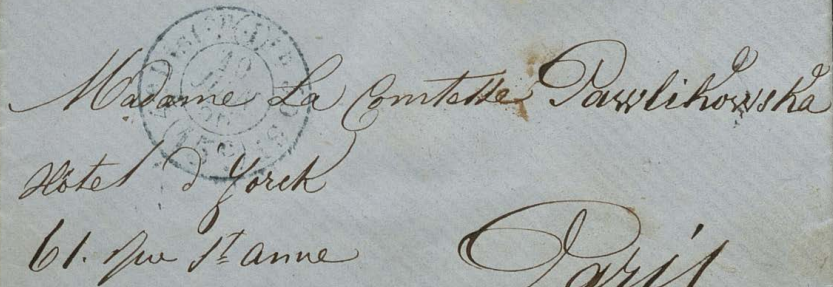 Madame La Comtesse Pawlikowska
Hôtel d'Yorck
61. rue St. anne
Paris